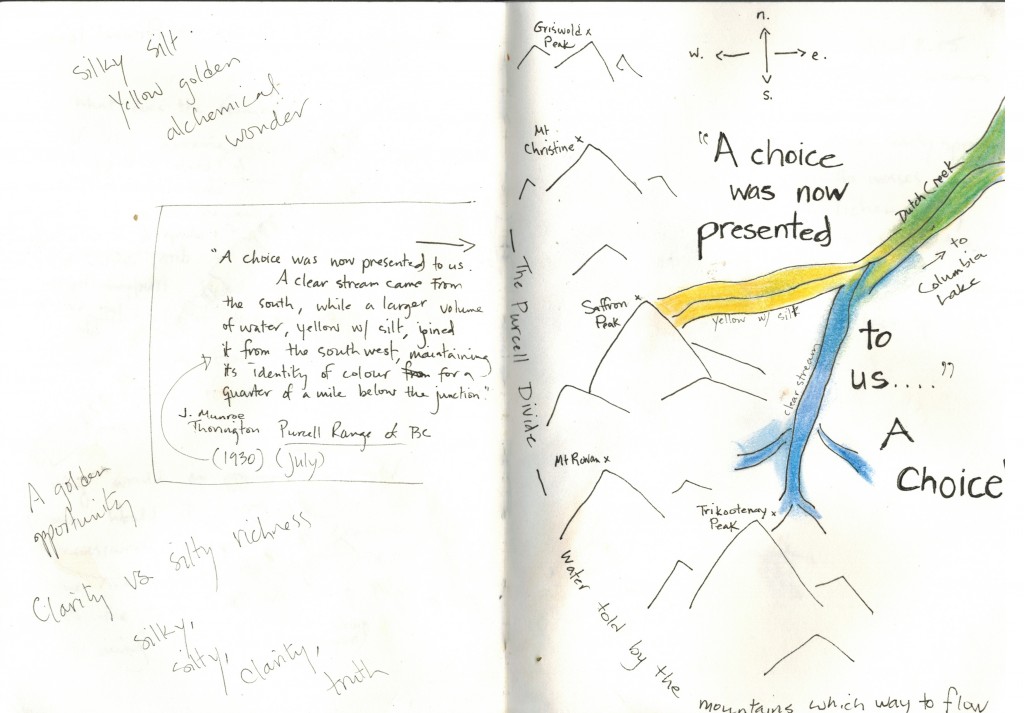 silky silt.
Yellow golden
alchemical
wonder.
"A choice was now presented to us.
A clear stream came from
the south, while a larger volume
of water, yellow w/ silt, joined
it from the southwest, maintaining
its identity of colour from for a
quarter of a mile below the junction."
J. Munroe
Thorington Purcell Range of BC
(1930) (July)
A golden
opportunity
Clarity vs silty richness
silky,
silty,
clarity,
truth
Griswold x
Peak
n.
w. e.
s.
Mt
Christine x
"A choice
was now
presented
Dutch Creek
→ to
Columbia
Lake
The Purcell Divide
Saffron x
Peak
yellow w/ silt
clear stream
to
us...."
A
Choice
Mt Rowan x
Trikootenay x
Peak
Water told by the
mountains which way to flow